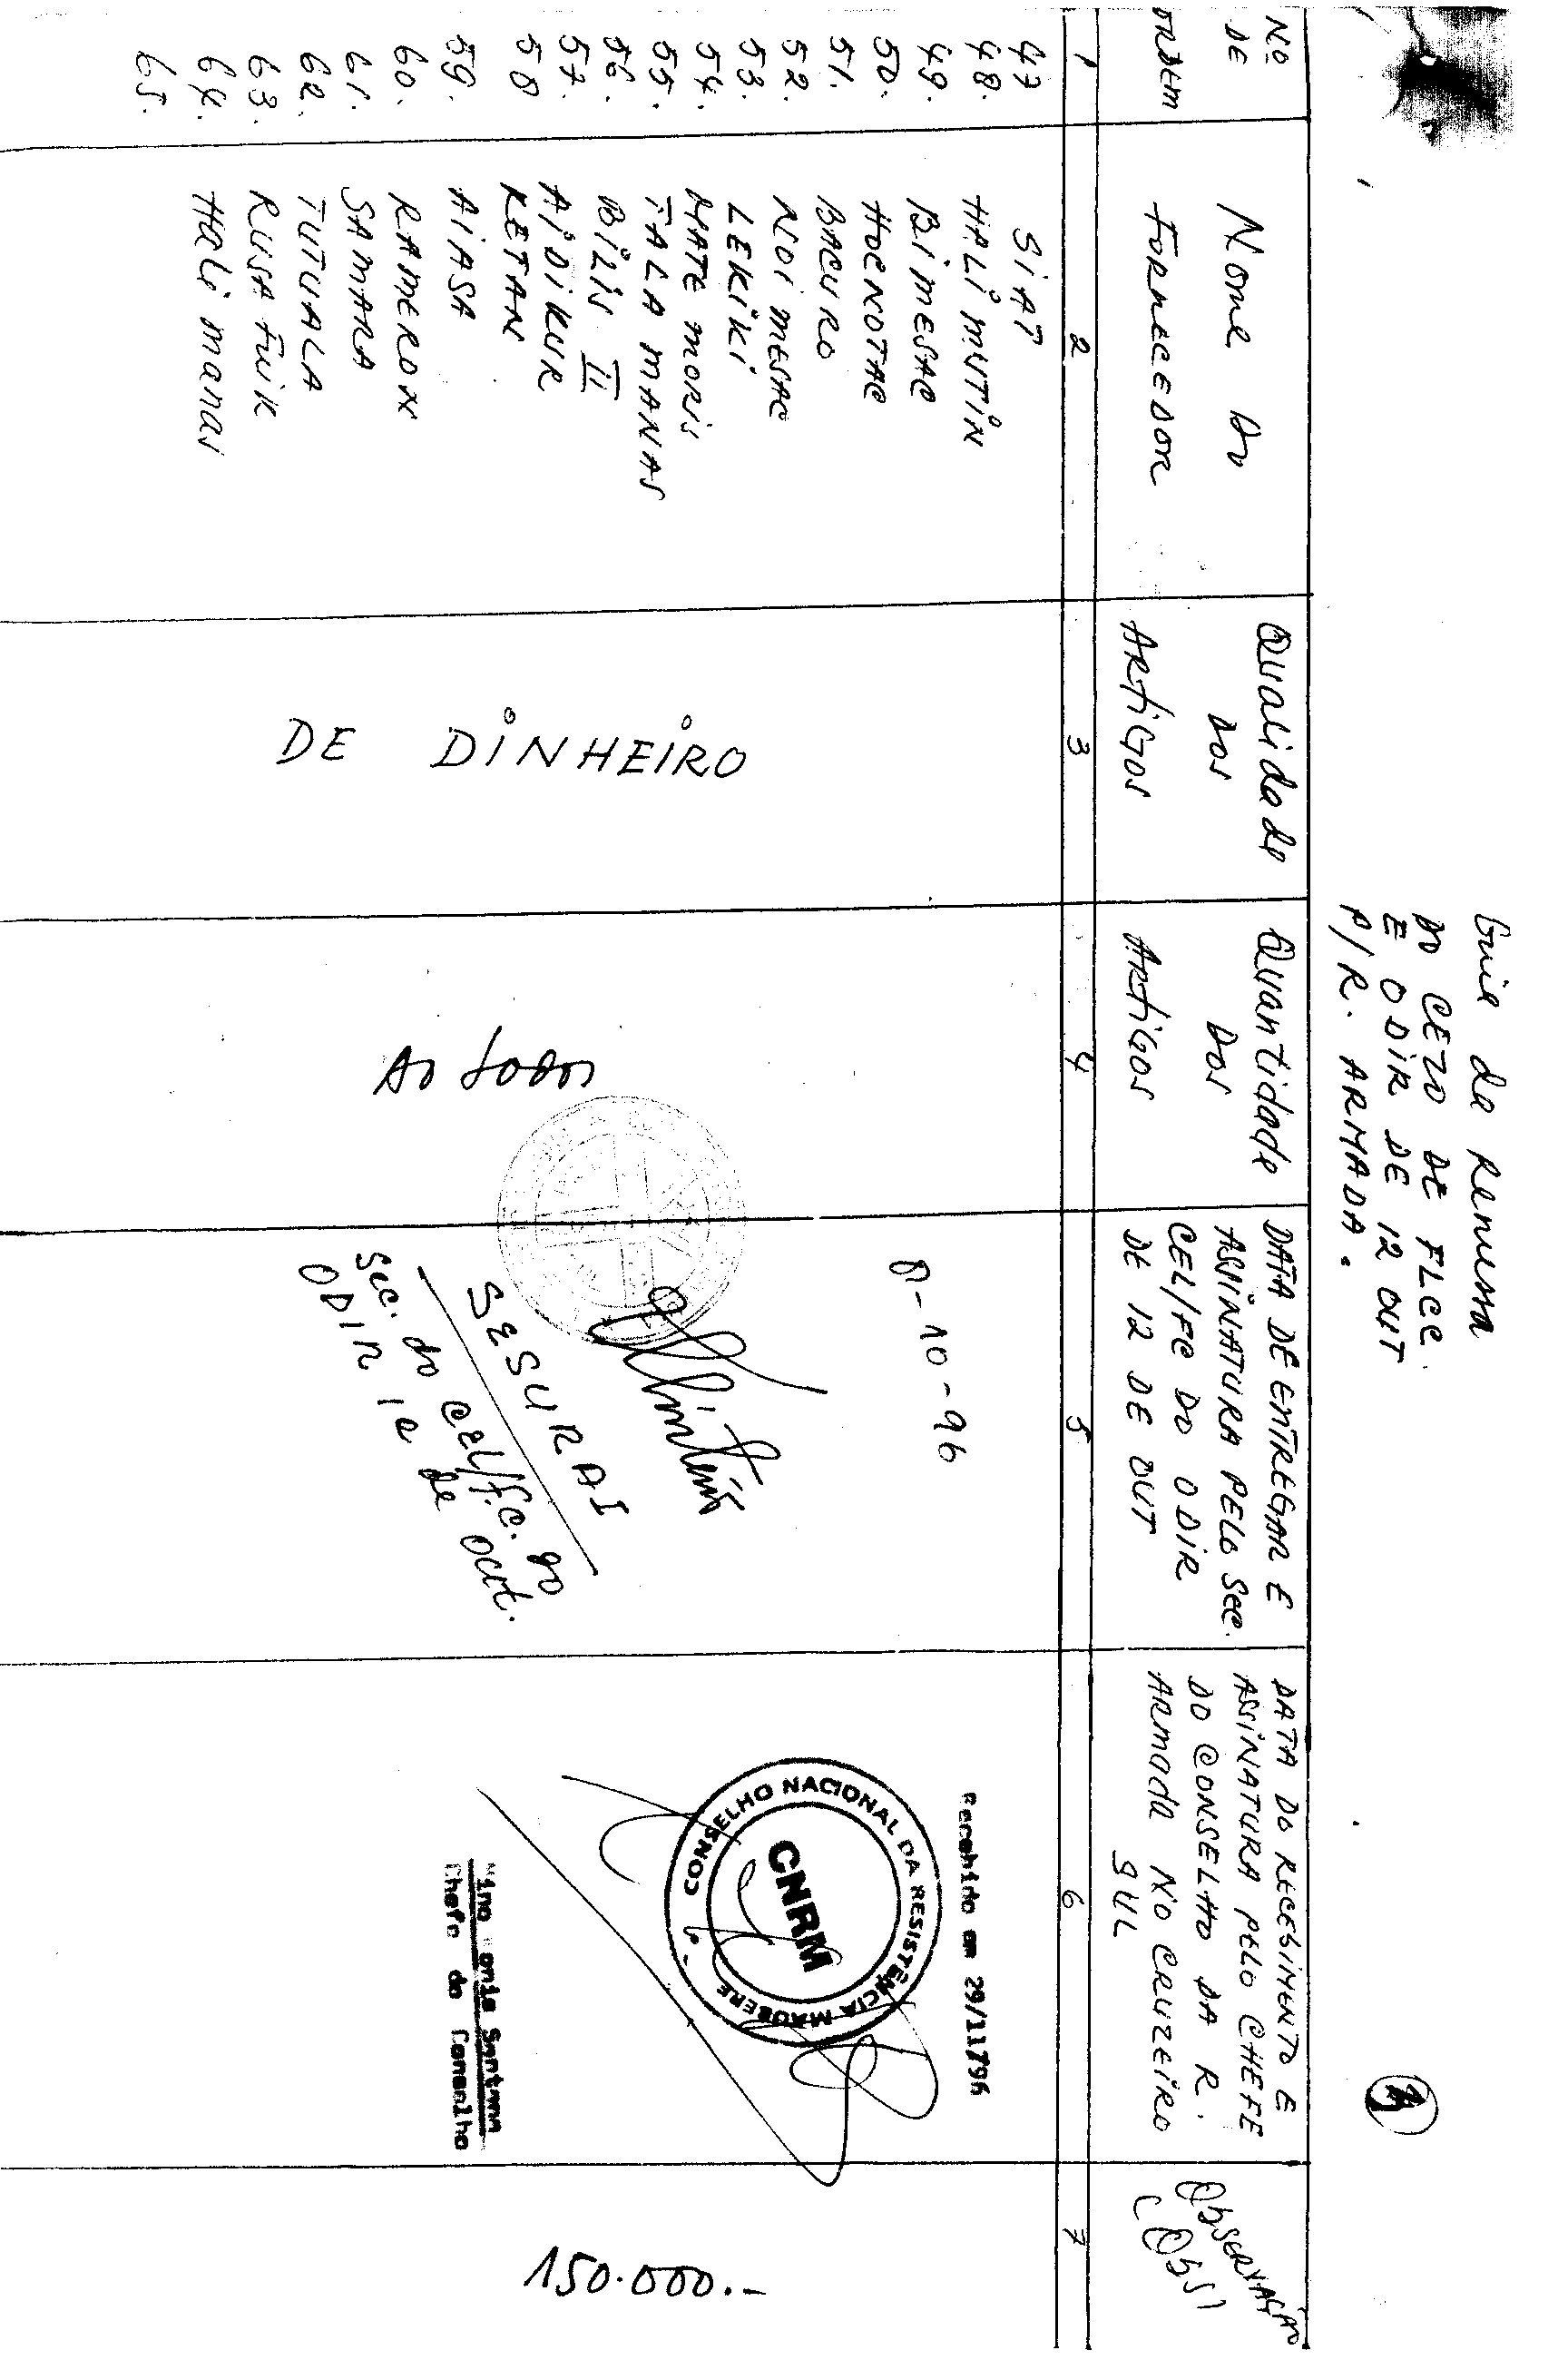 Guia de Remessa
DO CEZO DE FLCC.
E ODIR DE 12 OUT
P/R. ARMADA.
3
Nº DE ORDEM
Nome Do FORNECEDOR
Qualidade Dos Artigos
Quantidade Dos Artigos
DATA DE ENTREGAR E ASSINATURA PELO Sec. CEL/FC DO ODIR DE 12 DE OUT
DATA DO RECEBIMENTO E ASSINATURA PELO CHEFE DO CONSELHO DA R. ARMADA NO CRUZEIRO SUL
OBSERVAÇÃO (Obs)
1 2 3 4 5 6 7
47 SiAT
48. HALi MUTiN
49. BiMESAC
50. HOCNOTAC
51. BACURO
52. NOi MESAC
53. LEKiKi
54. MATE MORiS
55. TALA MANAS
56. BiLiS II
57. AiDiKUR
58 KETAN
59. AiASA
60. RAMERON
61. SAMARA
62. TUTUALA
63. RUSA FUiK
64. Hali manas
65.
DE DiNHEiRO
Ao todos
8-10-96
SESURAI
Sec. do CEL/F.C. do
ODIR 12 de out.
Recebido em 29/11/96
CONSELHO NACIONAL DA RESISTÊNCIA MAUBERE
CNRM
Santana
Chefe do Conselho
150.000.-